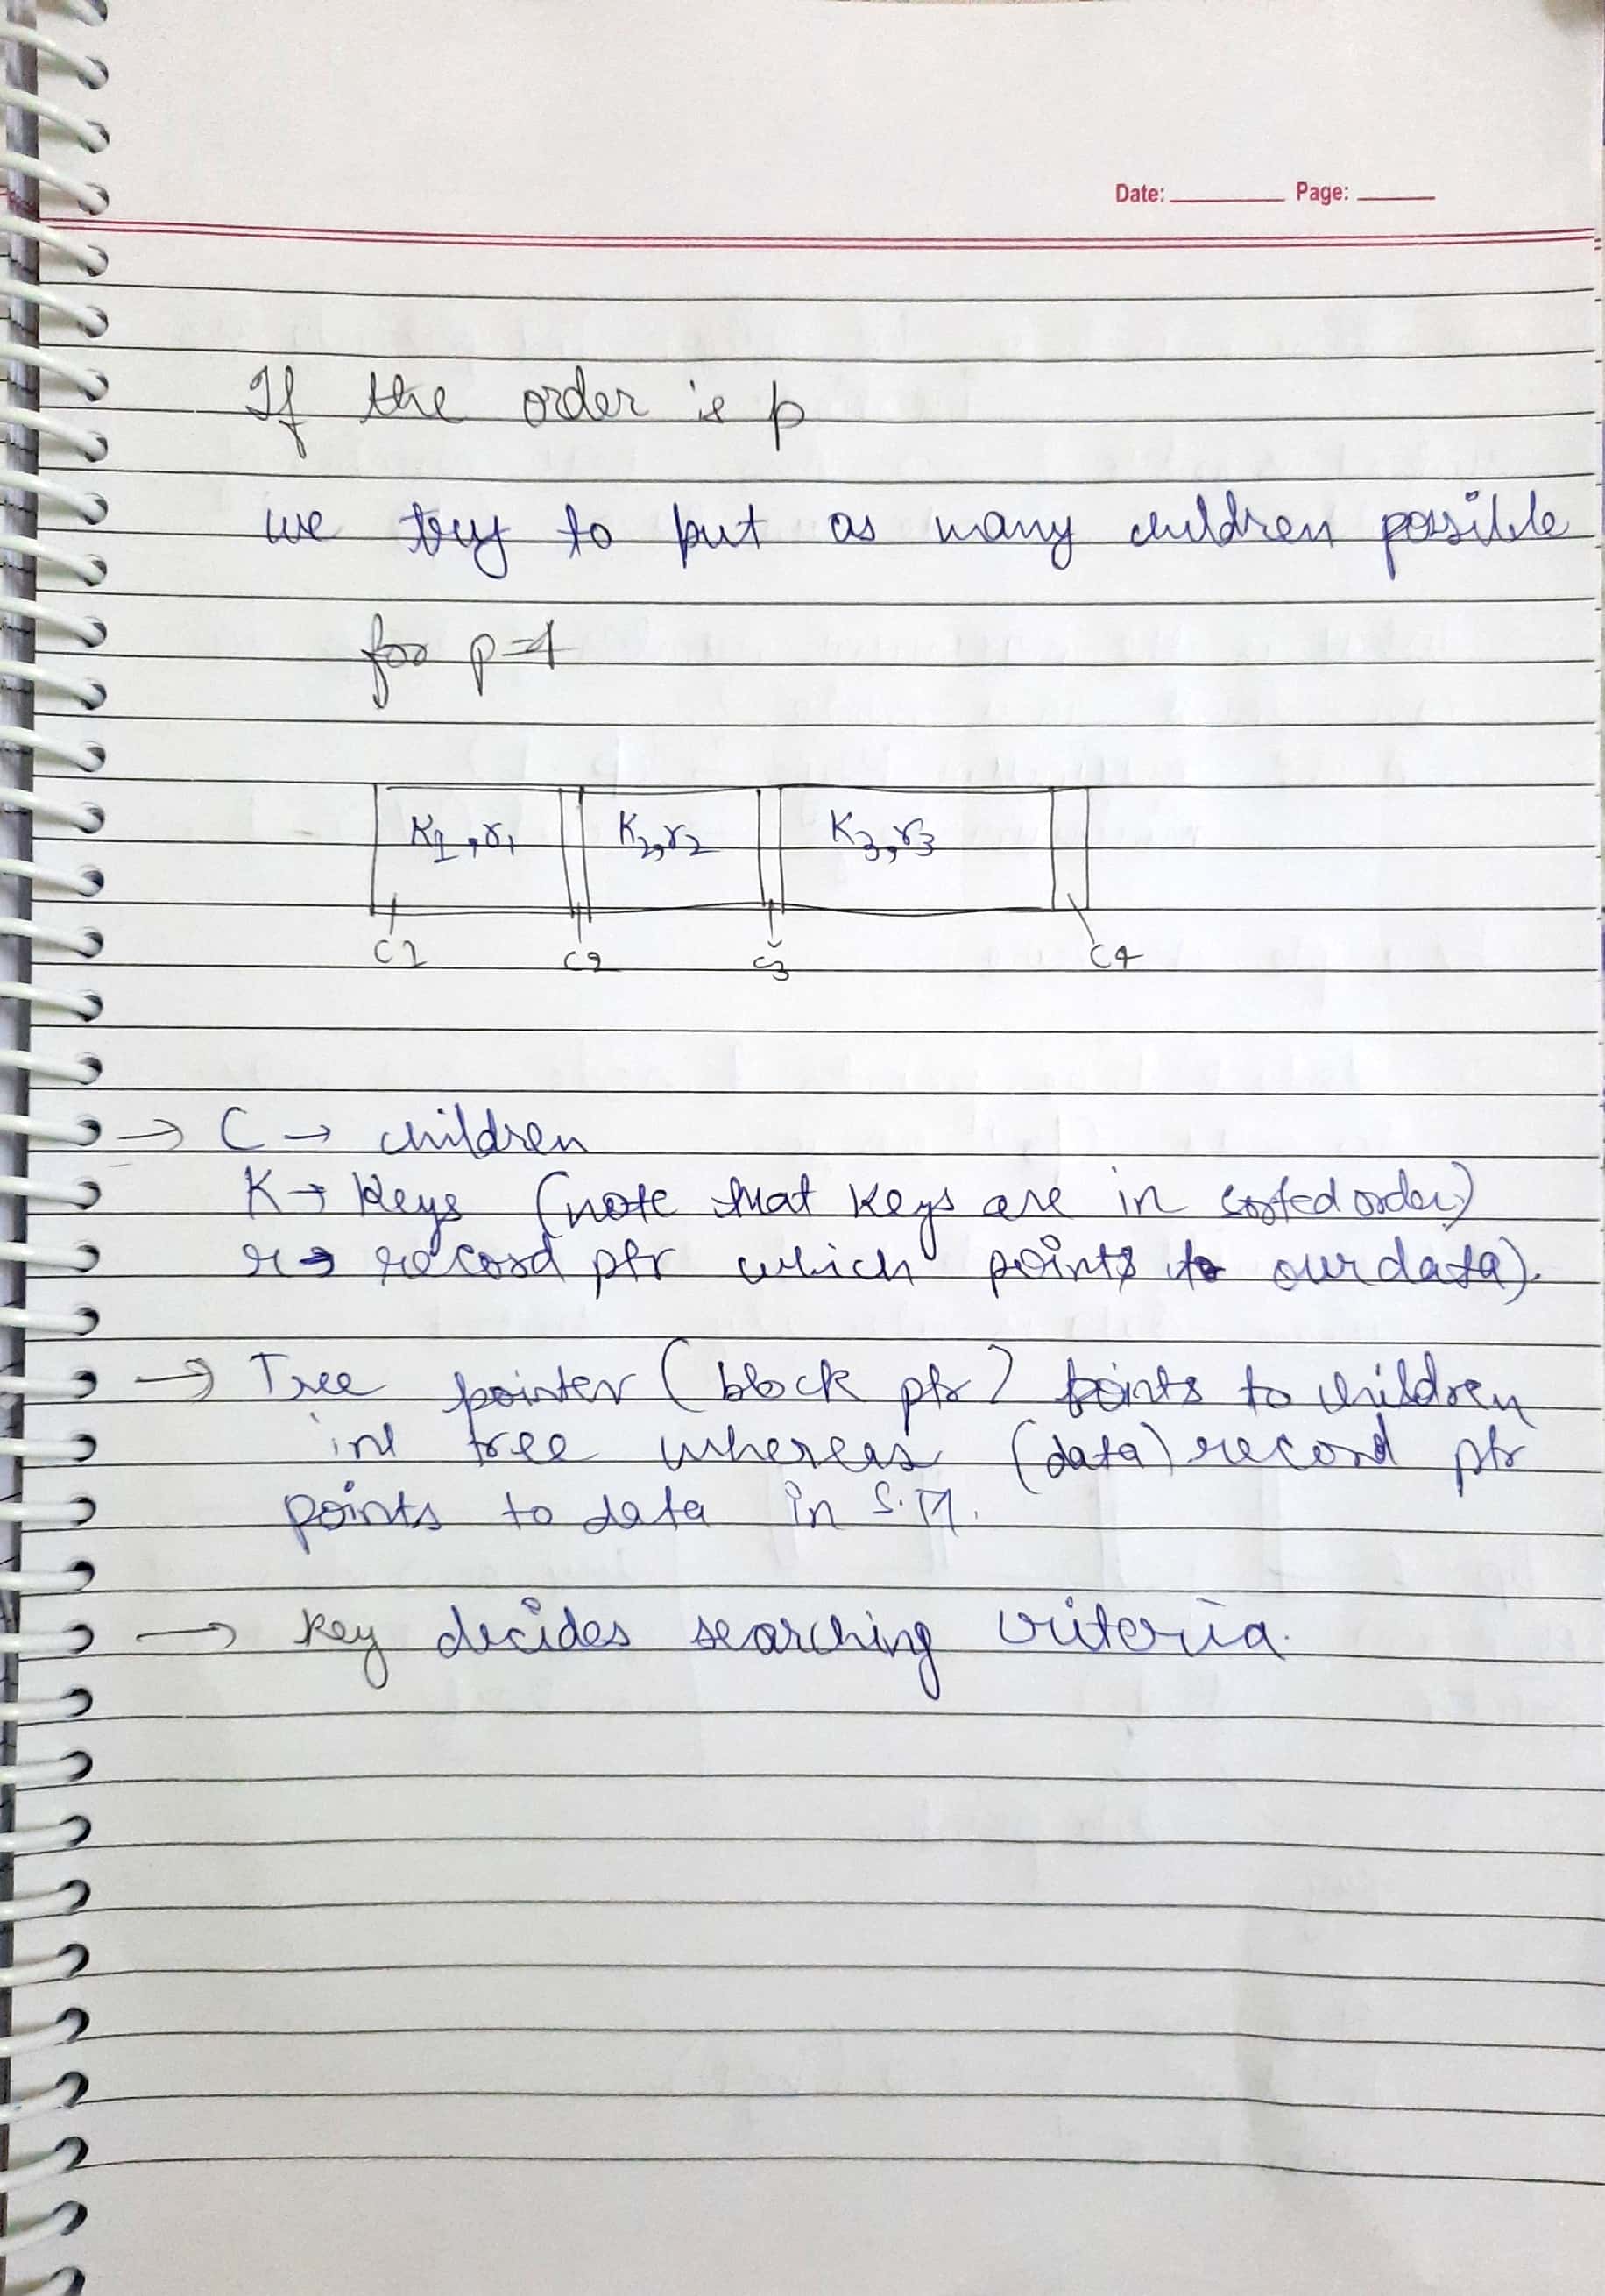 Date: Page:
If the order is p
we try to put as many children possible
for p=4
K1,r1 K2,r2 K3,r3
C1 C2 C3 C4
→ C → children
K → Keys (note that keys are in sorted order)
r → record ptr which points to our data).
→ Tree pointer (block ptr) points to children
in tree whereas (data) record ptr
points to data in S.M.
→ Key decides searching criteria.